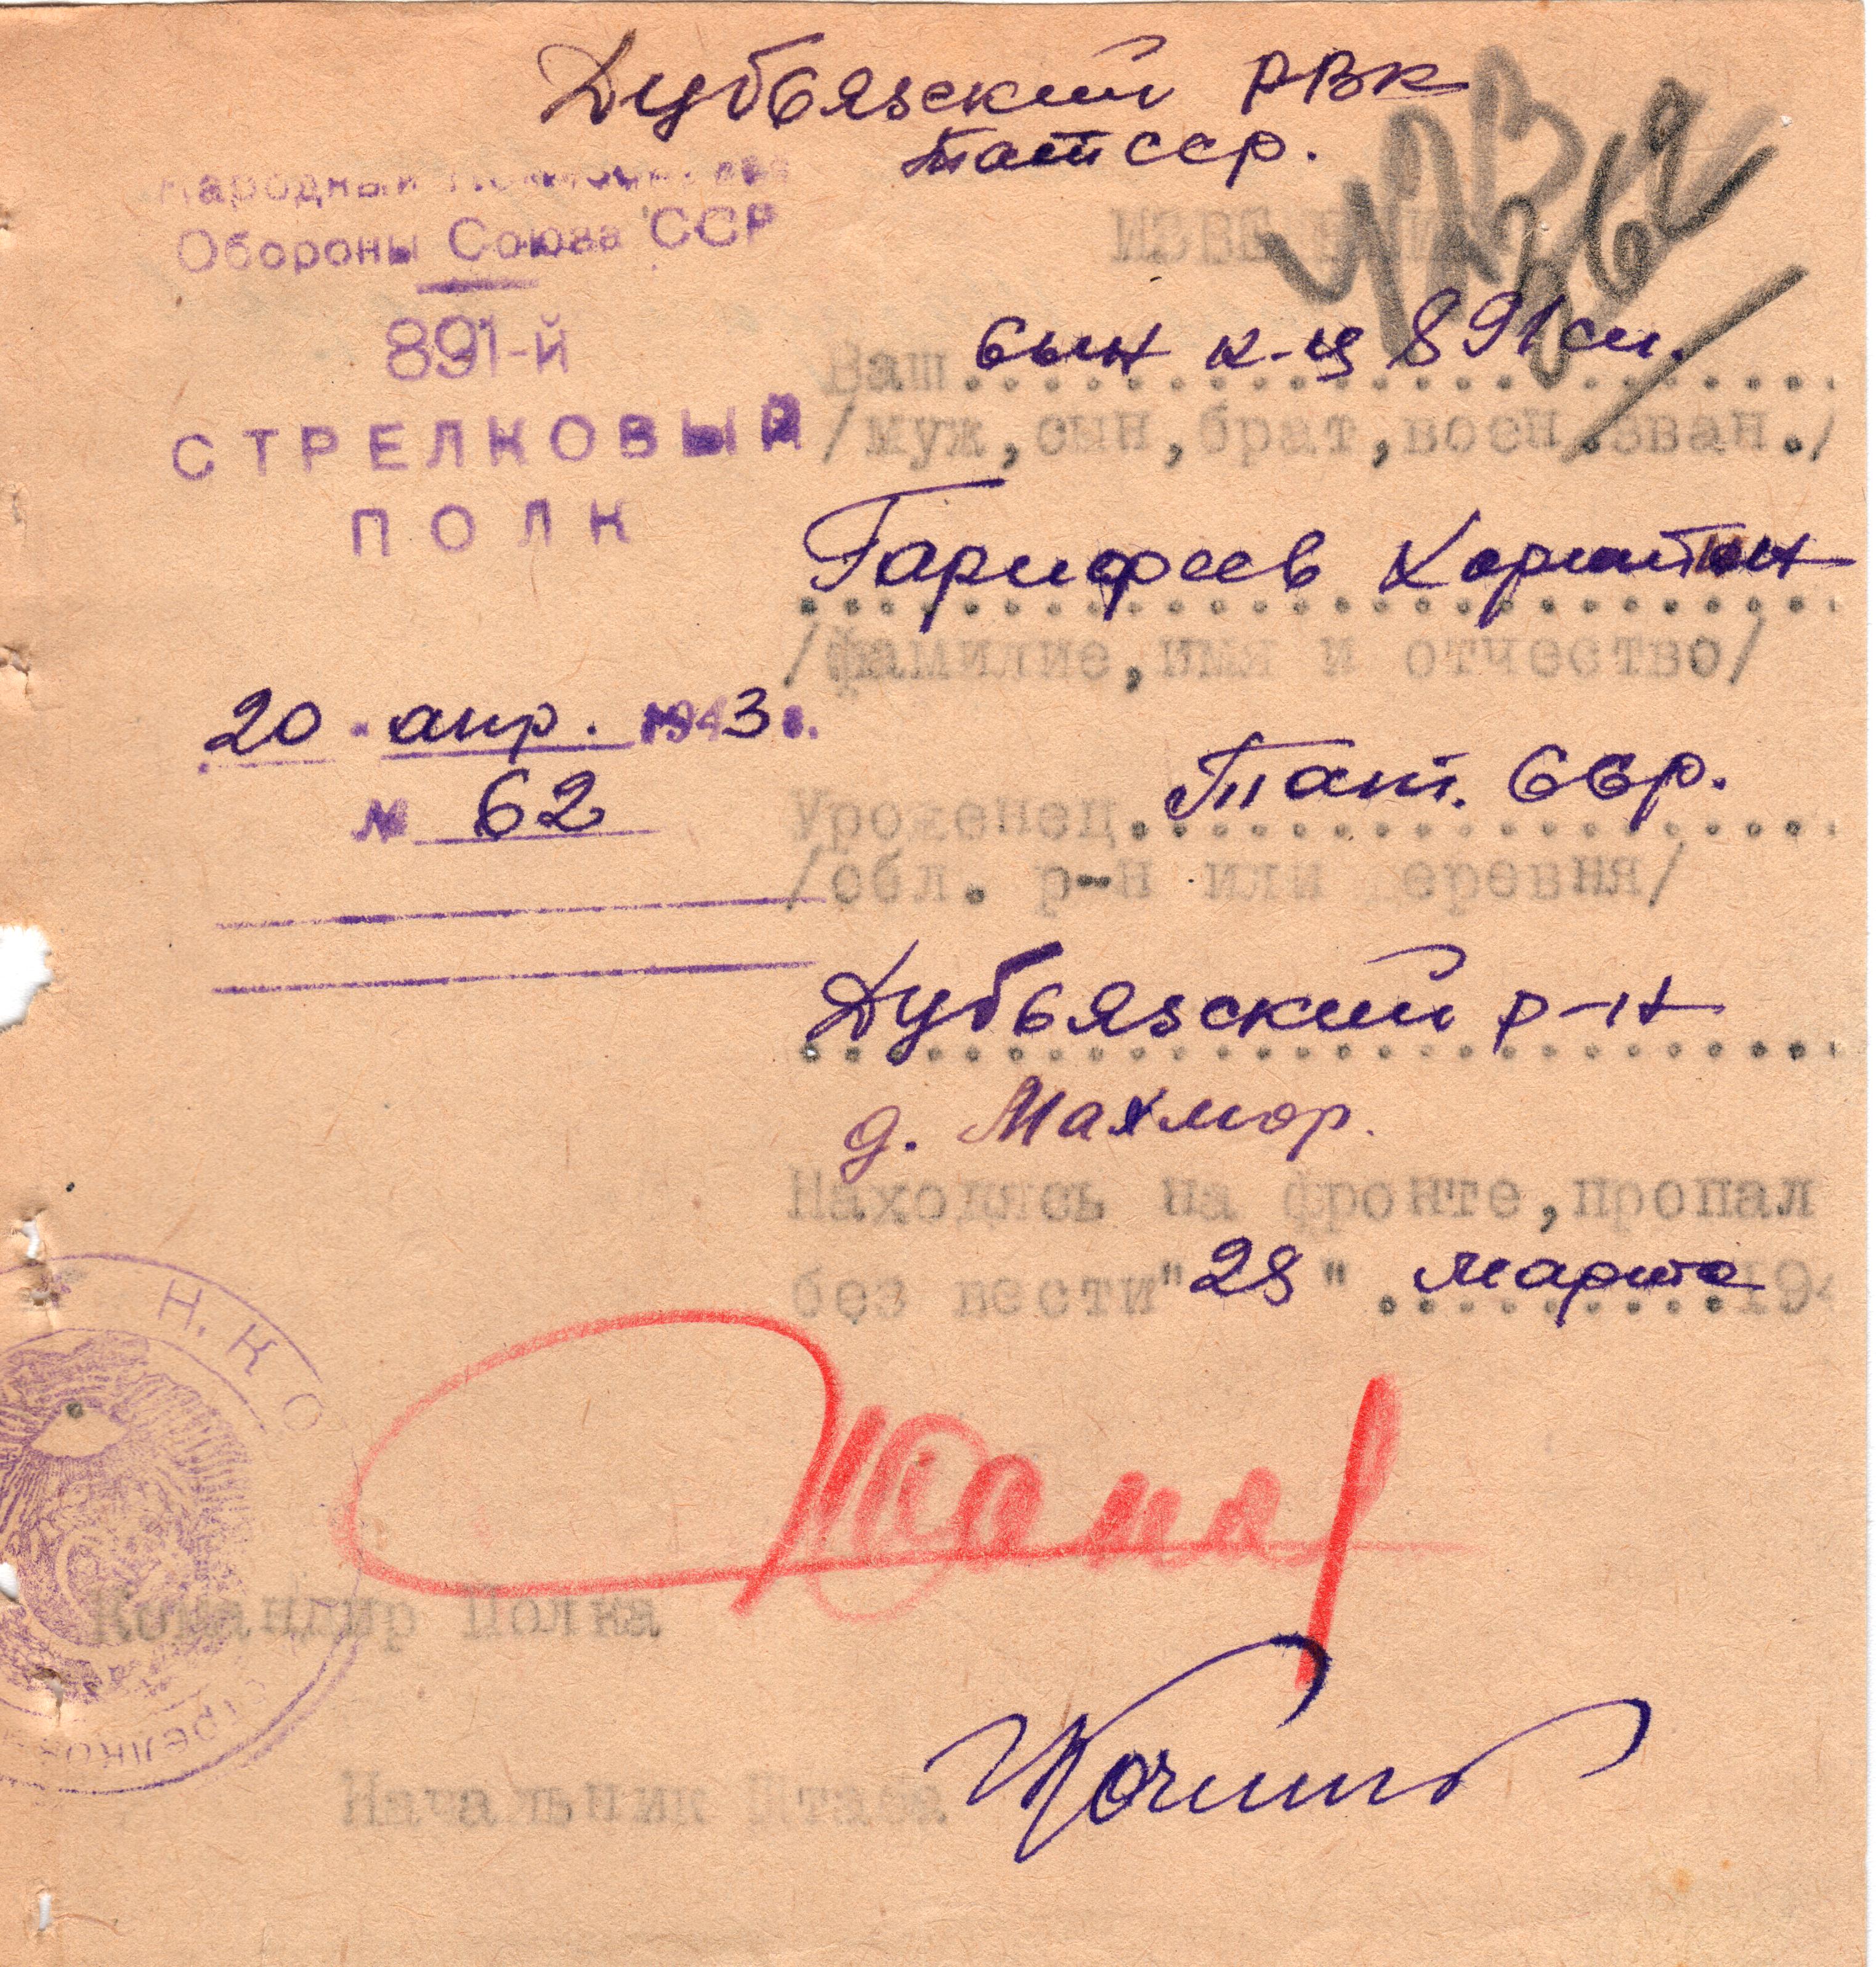 Дубьязский РВК
ТатССР.
Народный
Обороны Союза ССР
891-й
СТРЕЛКОВЫЙ
ПОЛК
20 апр. 1943 г.
№ 62
ИЗВЕЩЕНИЕ
Ваш сын к-ц 891 сп.
/муж, сын, брат, воен. зван./
Гарифеев
/фамилие, имя и отчество/
Уроженец Тат. ССР.
/обл. р-н или деревня/
Дубьязский р-н
д. Махмор.
Находясь на фронте, пропал
без вести "28" марта 194
Н.К.О
СТРЕЛКОВ
Командир Полка
Начальник Штаба